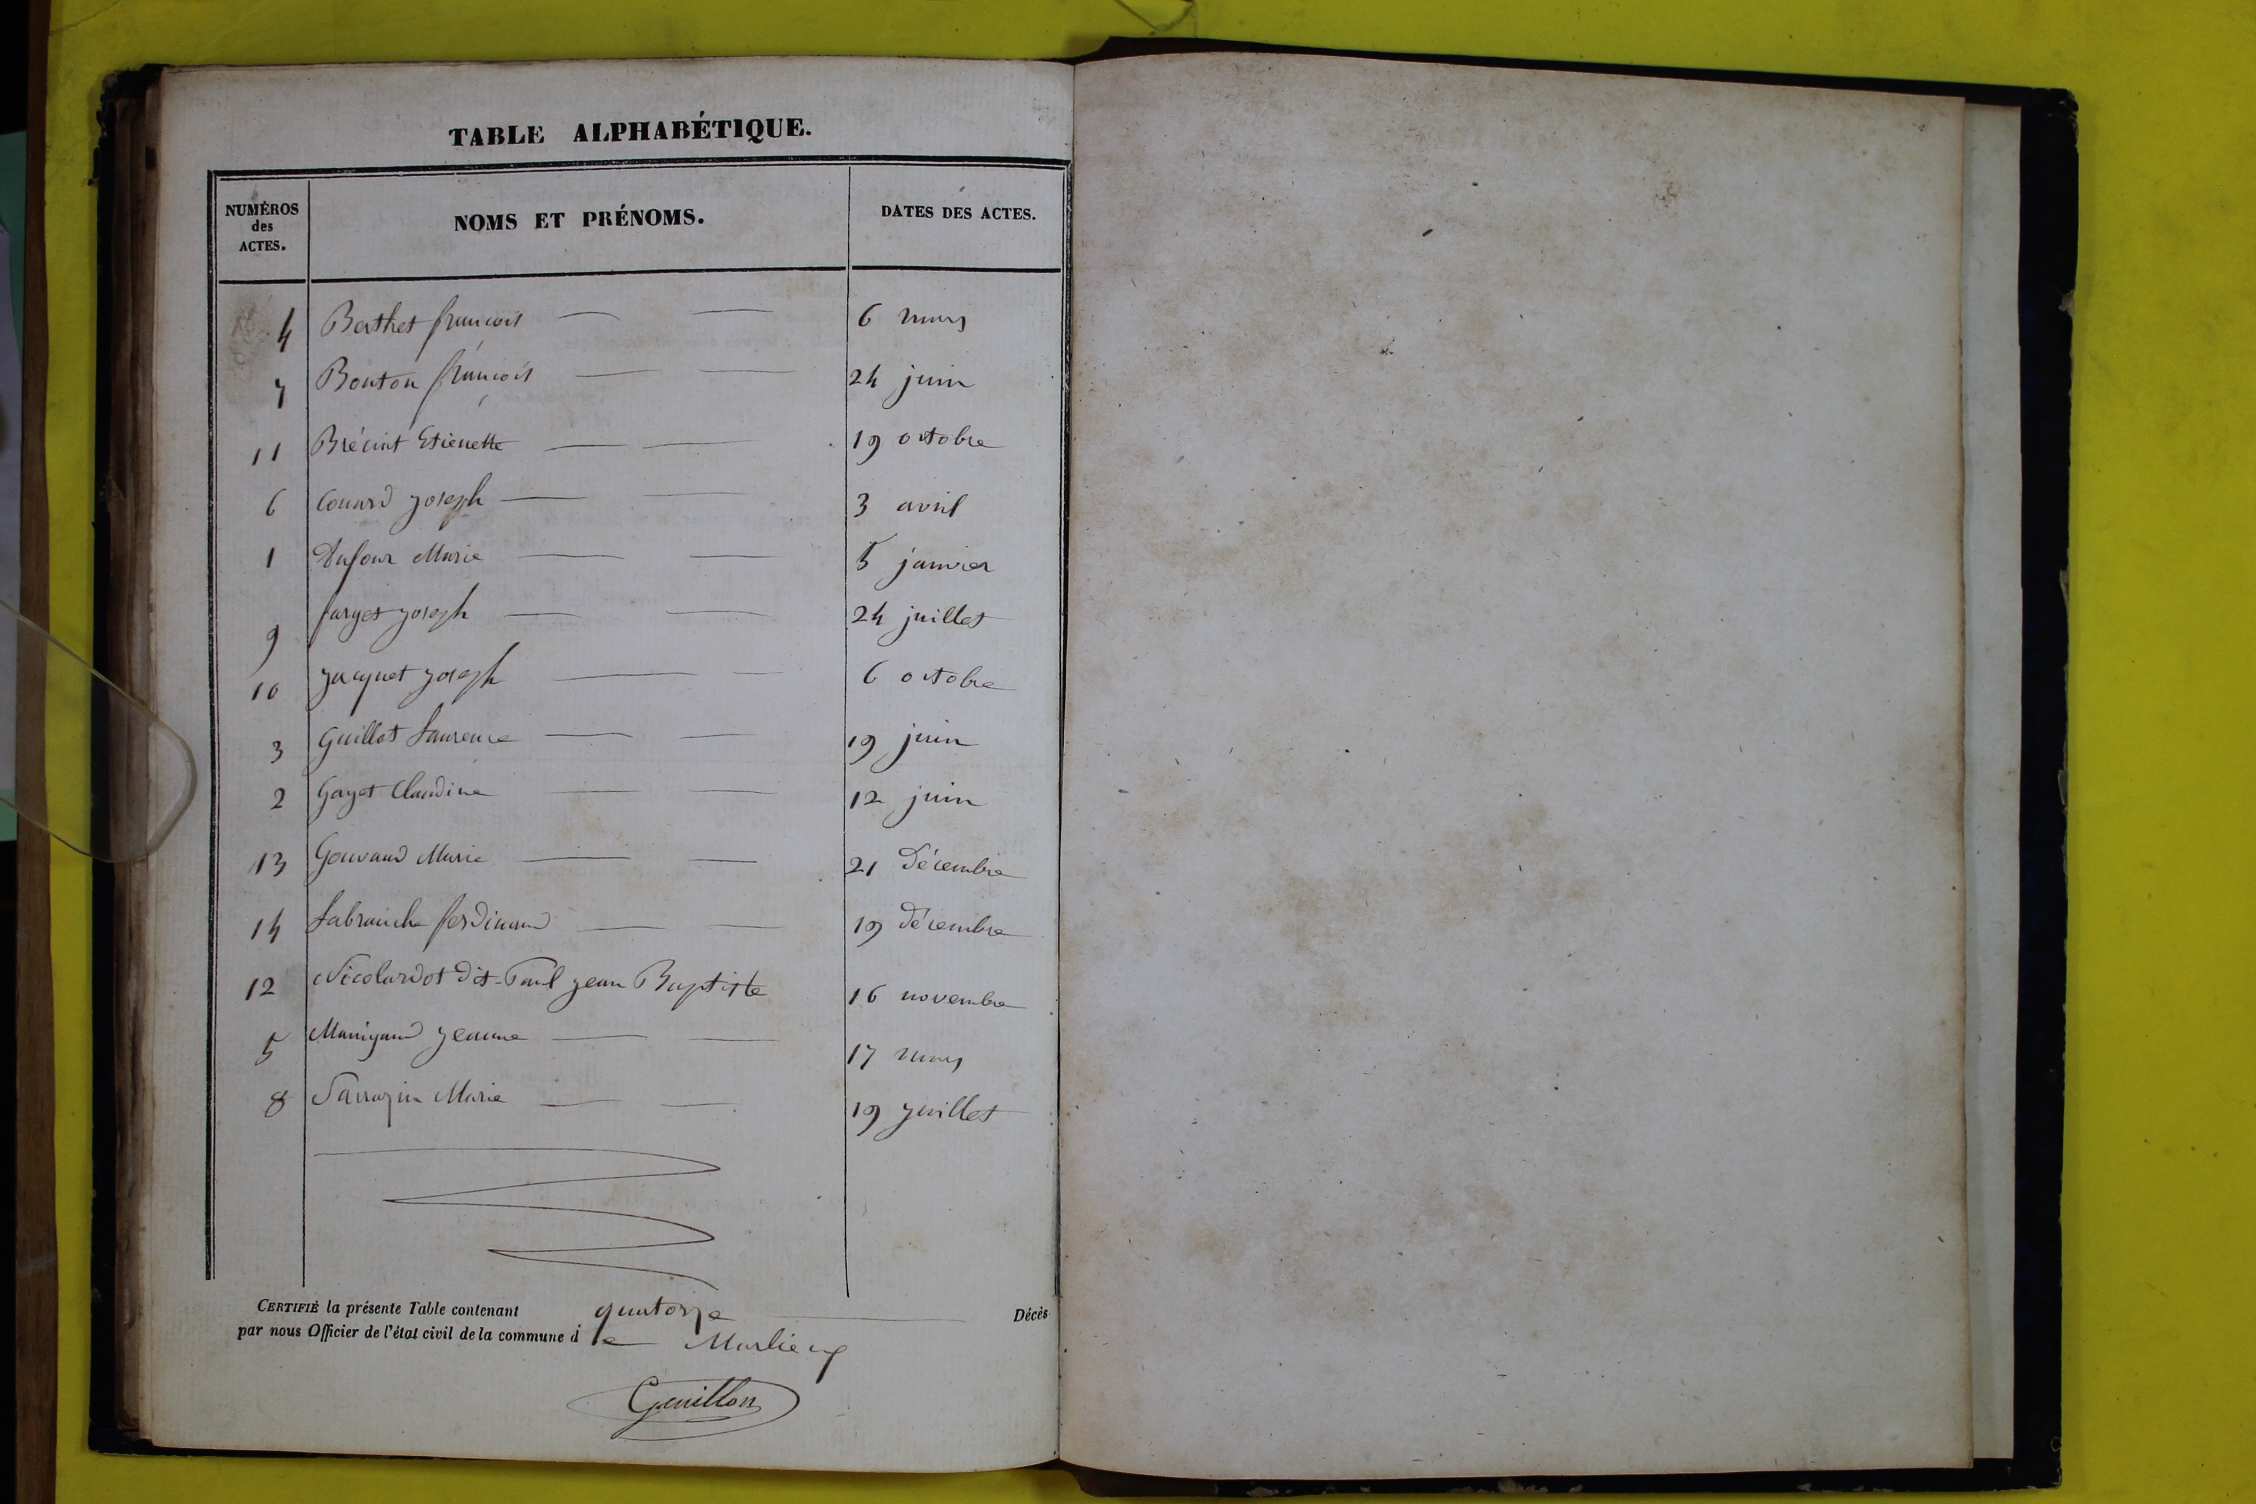 TABLE ALPHABÉTIQUE.
NUMÉROS des ACTES. NOMS ET PRÉNOMS. DATES DES ACTES.
4 Berthet françois 6 mars
7 Bouton françois 24 juin
11 Brécint Etienette 19 octobre
6 Couard joseph 3 avril
1 Dufour Marie 5 janvier
9 farges joseph 24 juillet
10 jacquet joseph 6 octobre
3 Guillot Laurence 19 juin
2 Gayet Claudine 12 juin
13 Gouvaud Marie 21 décembre
14 Labranche ferdinand 19 décembre
12 Nicolardot dit-Paul jean Baptiste 16 novembre
5 Manigand jeanne 17 mars
8 Sarrazin Marie 19 juillet
CERTIFIÉ la présente Table contenant quatorze Décès
par nous Officier de l'état civil de la commune de Marlieux
Guillon